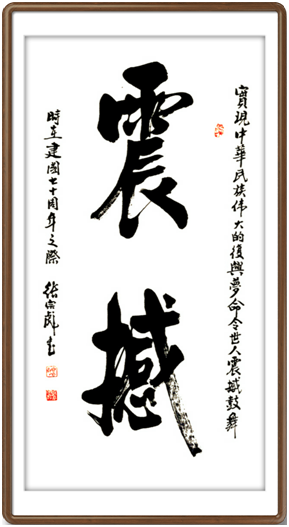 實現中華民族伟大的復興夢命令世人震撼鼓舞
震撼
時在建國七十周年之際